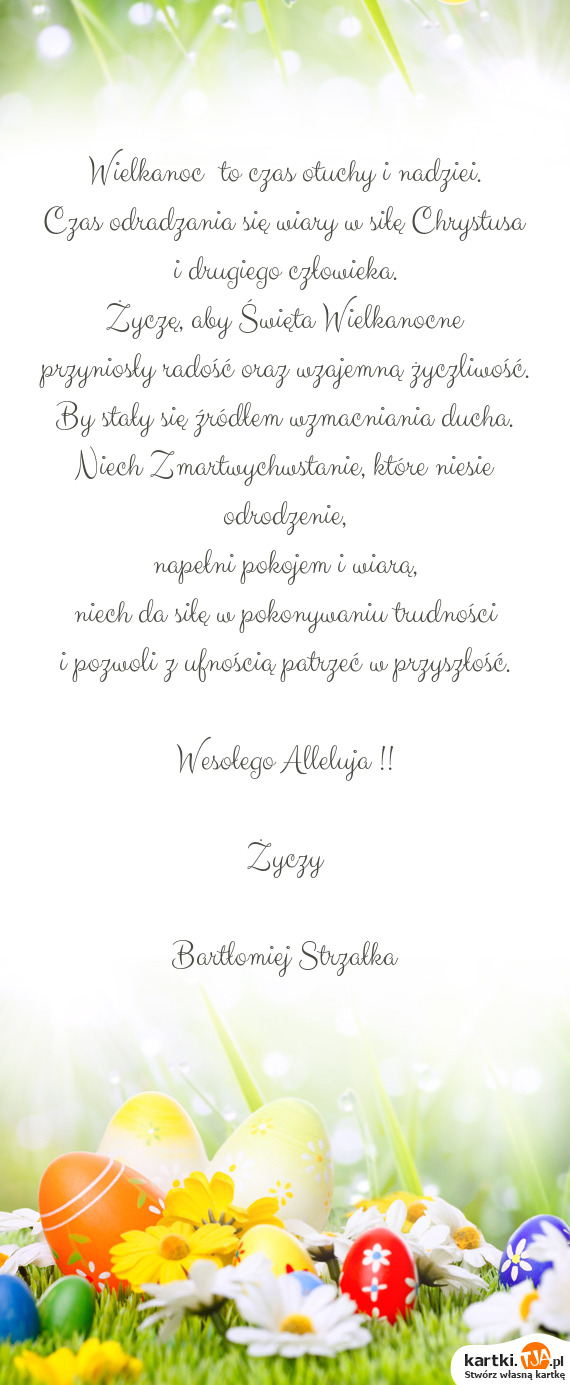 Wielkanoc to czas otuchy i nadziei.
Czas odradzania się wiary w siłę Chrystusa
i drugiego człowieka.
Życzę, aby Święta Wielkanocne
przyniosły radość oraz wzajemną życzliwość.
By stały się źródłem wzmacniania ducha.
Niech Zmartwychwstanie, które niesie
odrodzenie,
napełni pokojem i wiarą,
niech da siłę w pokonywaniu trudności
i pozwoli z ufnością patrzeć w przyszłość.
Wesołego Alleluja !!
Życzy
Bartłomiej Strzałka
kartki.TJA.pl
Stwórz własną kartkę